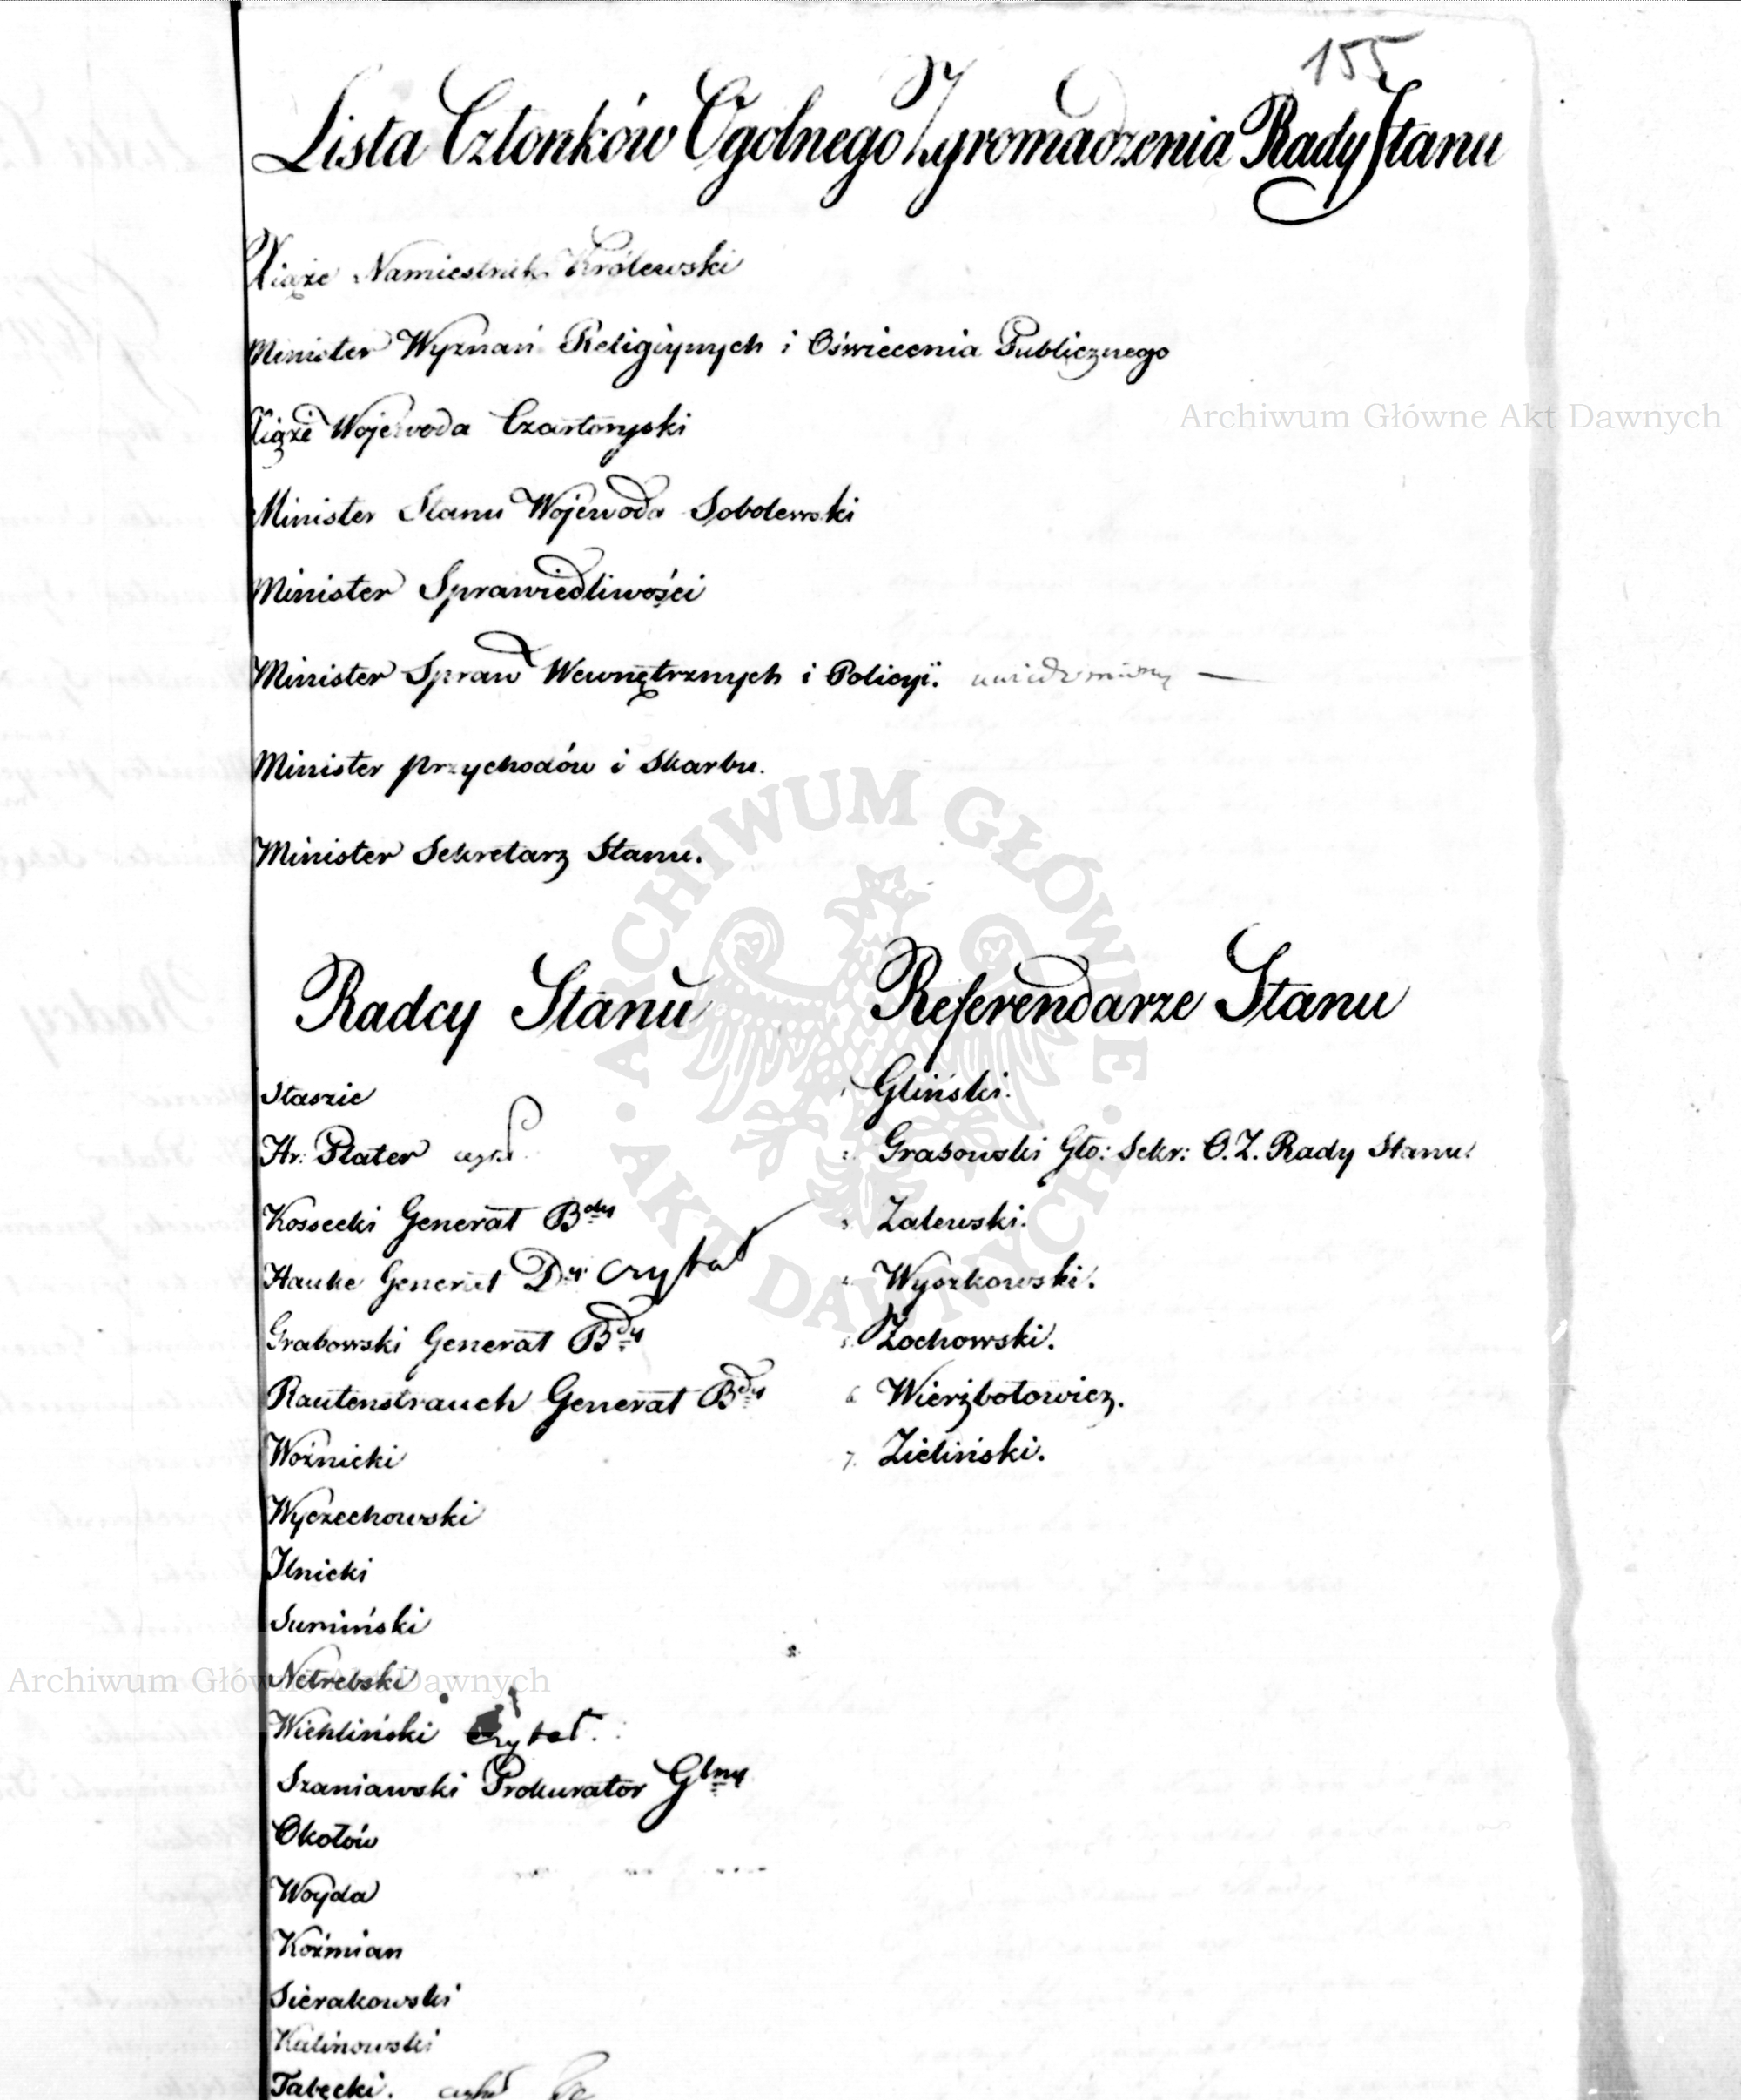 155
Lista Członków Ogolnego Zgromadzenia Rady Stanu
Xiąże Namiestnik Królewski
Minister Wyznań Religiynych i Oświecenia Publicznego
Xiąże Wojewoda Czartoryski
Archiwum Główne Akt Dawnych
Minister Stanu Wojewoda Sobolewski
Minister Sprawiedliwości
Minister Spraw Wewnętrznych i Policyi. uwiadomiony —
Minister przychodów i Skarbu.
Minister Sekretarz Stanu.
ARCHIWUM GŁÓWNE • AKT DAWNYCH •
Radcy Stanu
Staszic
Hr: Plater czytał
Kossecki Generał Bdy
Hauke Generał Dyi czytał
Grabowski Generał Bdy
Rautenstrauch Generał Bdy
Woźnicki
Wyczechowski
Ilnicki
Sumiński
Netrebski
Archiwum Główne Akt Dawnych
Wichliński Czytał.
Szaniawski Prokurator Glny
Okołów
Woyda
Koźmian
Sierakowski
Kalinowski
Tabęcki. czytał
Referendarze Stanu
1. Gliński.
2. Grabowski Gło: Sekr: O. Z. Rady Stanu.
3. Zalewski.
4. Wyszkowski.
5. Żochowski.
6 Wierzbołowicz.
7. Zieliński.